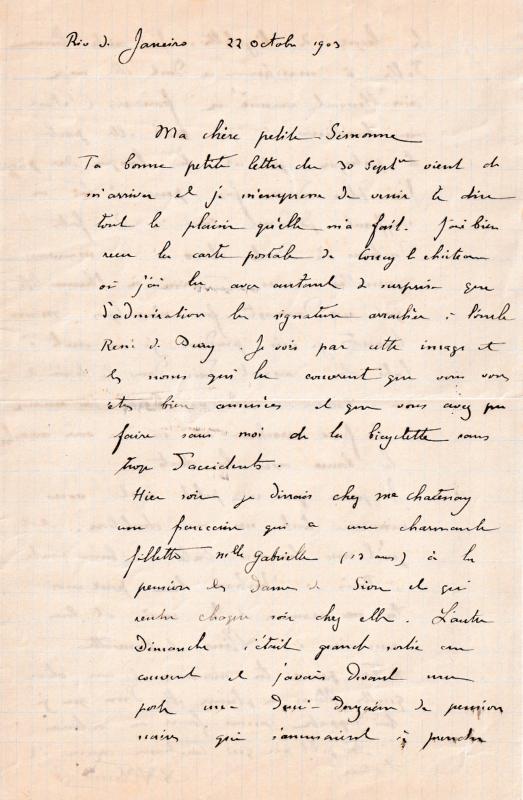 Rio de Janeiro 22 Octobre 1903
Ma chère petite Simonne
Ta bonne petite lettre du 30 Septbre vient de
m'arriver et je m'empresse de venir te dire
tout le plaisir qu'elle m'a fait. J'ai bien
reçu la carte postale de Coucy le château
où j'ai lu avec autant de surprise que
d'admiration la signature arrachée à l'oncle
René de Dury. Je vois par cette image et
les noms qui la couvrent que vous vous
êtes bien amusées et que vous avez pu
faire sans moi de la bicyclette sans
trop d'accidents.
Hier soir je dînais chez Me Chatenay
une française qui a une charmante
fillette Melle Gabrielle (13 ans) à la
pension des Dames de Sion et qui
rentre chaque soir chez elle. L'autre
Dimanche c'était grande sortie au
couvent et j'avais devant ma
porte une demi-douzaine de pension
naires qui s'amusaient à prendre